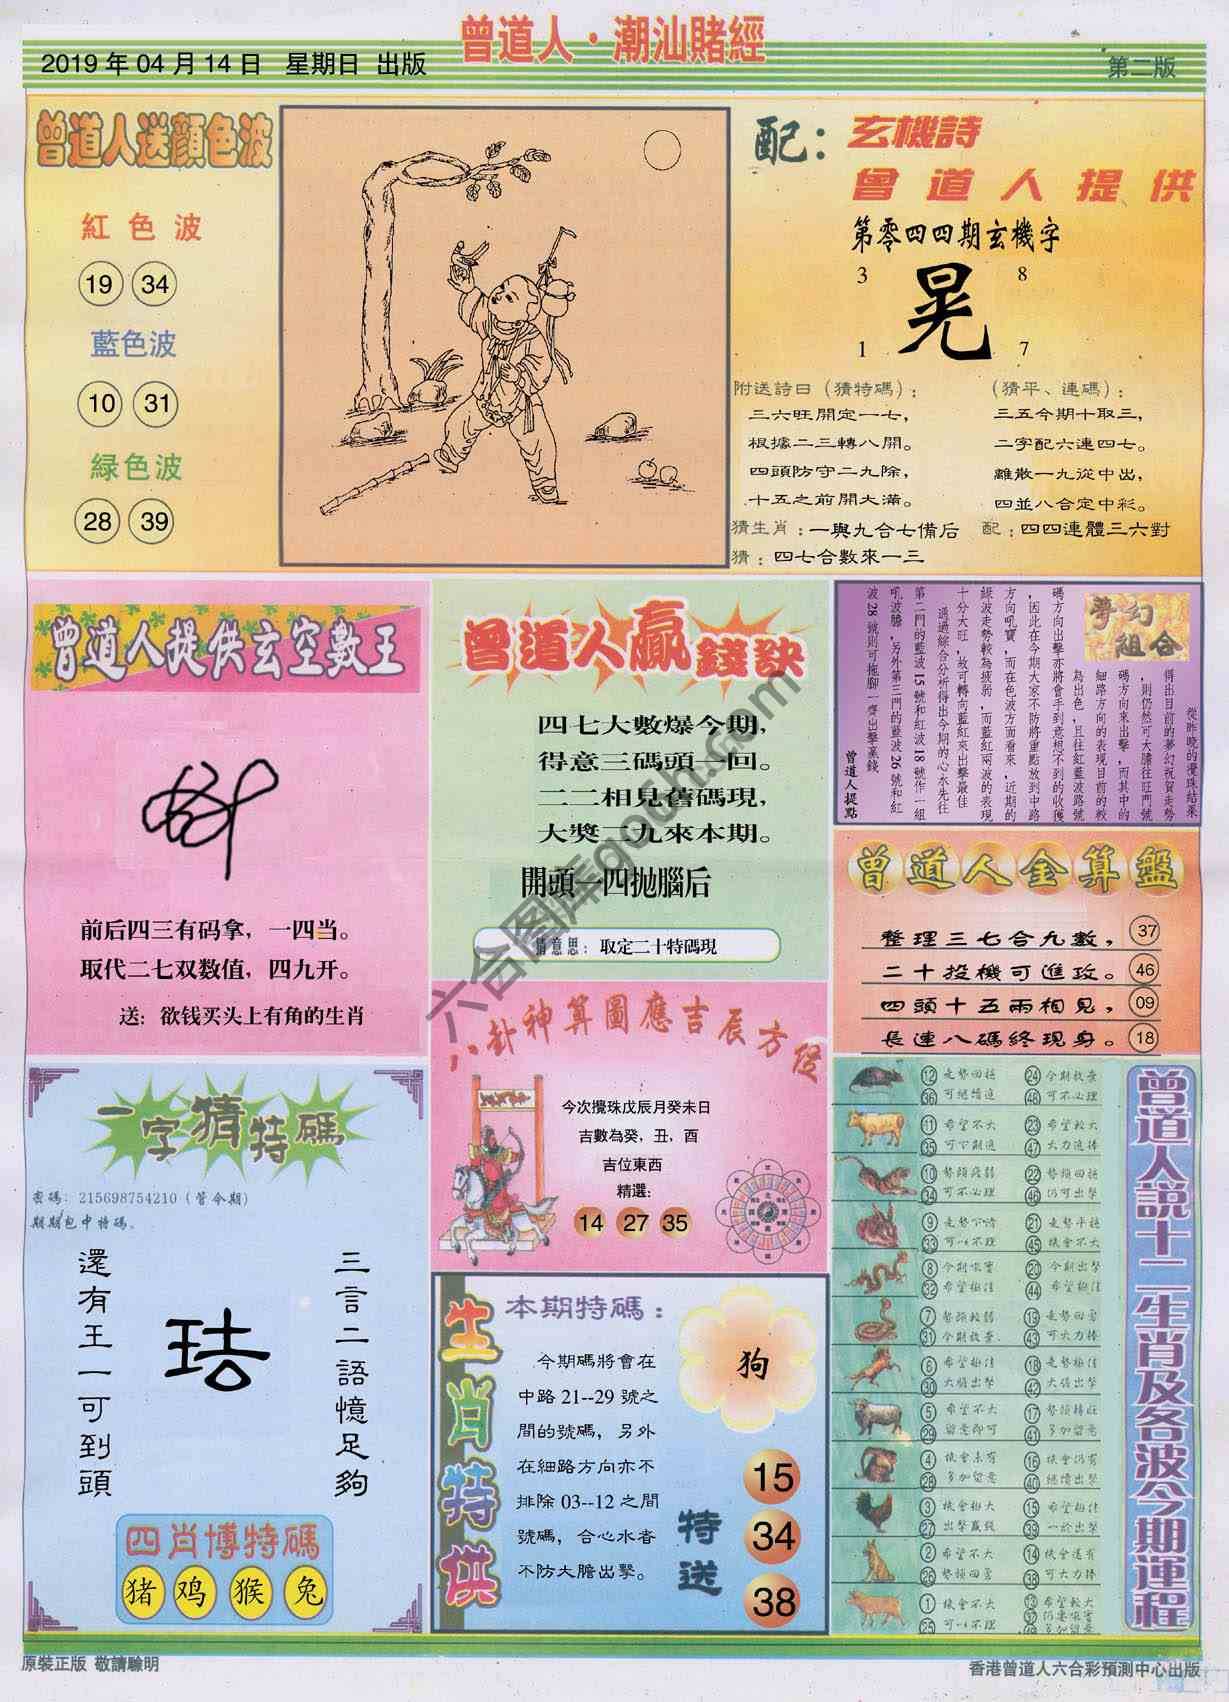 曾道人·潮汕賭經
2019年04月14日 星期日 出版
第二版
曾道人送顏色波
紅色波
19 34
藍色波
10 31
緑色波
28 39
配：玄機詩
曾道人提供
第零四四期玄機字
3 8
晃
1 7
附送詩曰（猜特碼）：
三六旺開定一七，
根據二三轉八開。
四頭防守二九除，
十五之前開大滿。
（猜平、連碼）：
三五今期十取三，
二字配六連四七。
離散一九從中出，
四並八合定中彩。
猜生肖：一與九合七備后
配：四四連體三六對
猜：四七合數來一三
曾道人提供玄空數王
前后四三有码拿，一四当。
取代二七双数值，四九开。
送：欲钱买头上有角的生肖
曾道人贏錢訣
四七大數爆今期，
得意三碼頭一回。
二二相見舊碼現，
大獎二九來本期。
開頭一四拋腦后
猜意思：取定二十特碼現
夢幻組合
從昨晚的攪珠結果
得出目前的夢幻祝賀走勢
，則仍然可大膽往旺門號
碼方向來出擊，而其中的
細路方向的表現目前的較
為出色，且往紅藍波路號
碼方向出擊亦將會手到意想不到的收獲
，因此在今期大家不防將重點放到中路
方向吼寶，而在色波方面看來，近期的
綠波走勢較為疲弱，而藍紅兩波的表現
十分大旺，故可轉向藍紅來出擊最佳
通過綜合分析得出今期的心水先往
第二門的藍波15號和紅波18號作一組
吼波膽，另外第三門的藍波26號和紅
波28號則可拖腳一齊出擊贏錢
曾道人提點
曾道人金算盤
整理三七合九數， 37
二十投機可進攻。 46
四頭十五兩相見， 09
長連八碼終現身。 18
八卦神算圖應吉辰方位
今次攪珠戊辰月癸未日
吉數為癸，丑，酉
吉位東西
精選：
14 27 35
一字猜特碼
密碼：215698754210（管令期）
期期包中特碼。
三言二語憶足夠
還有王一可到頭
四肖博特碼
猪 鸡 猴 兔
生肖特供
本期特碼：
今期碼將會在
中路21--29號之
間的號碼，另外
在細路方向亦不
排除03--12之間
號碼，合心水者
不防大膽出擊。
狗
特送
15
34
38
曾道人說十二生肖及各波今期運程
12 走勢回穩 24 今期放棄
36 可繼續追 48 可不必理
11 希望不大 23 希望較大
35 可下期追 47 大力追捧
10 勢頭疲弱 22 勢頭回穩
34 可不必理 46 仍可出擊
9 走勢下滑 21 走勢平穩
33 可以不理 45 機會不大
8 今期吼實 20 今期出擊
32 希望極佳 44 希望極佳
7 勢頭較弱 19 勢頭回勇
31 今期放棄 43 可大力捧
6 希望極佳 18 走勢極佳
30 大膽出擊 42 大膽出擊
5 希望不大 17 勢頭轉旺
29 留意即可 41 多加留意
4 機會未有 16 機會仍有
28 多加留意 40 繼續出擊
3 機會極大 15 希望極佳
27 出擊贏錢 39 一於出擊
2 希望不大 14 機會還有
26 勢頭回勇 38 可大力捧
1 機會不大 13 希望較大
25 可以不理 37 仍要吼實
49 多加留意
原裝正版 敬請驗明
香港曾道人六合彩預測中心出版
六合图库gootk.com